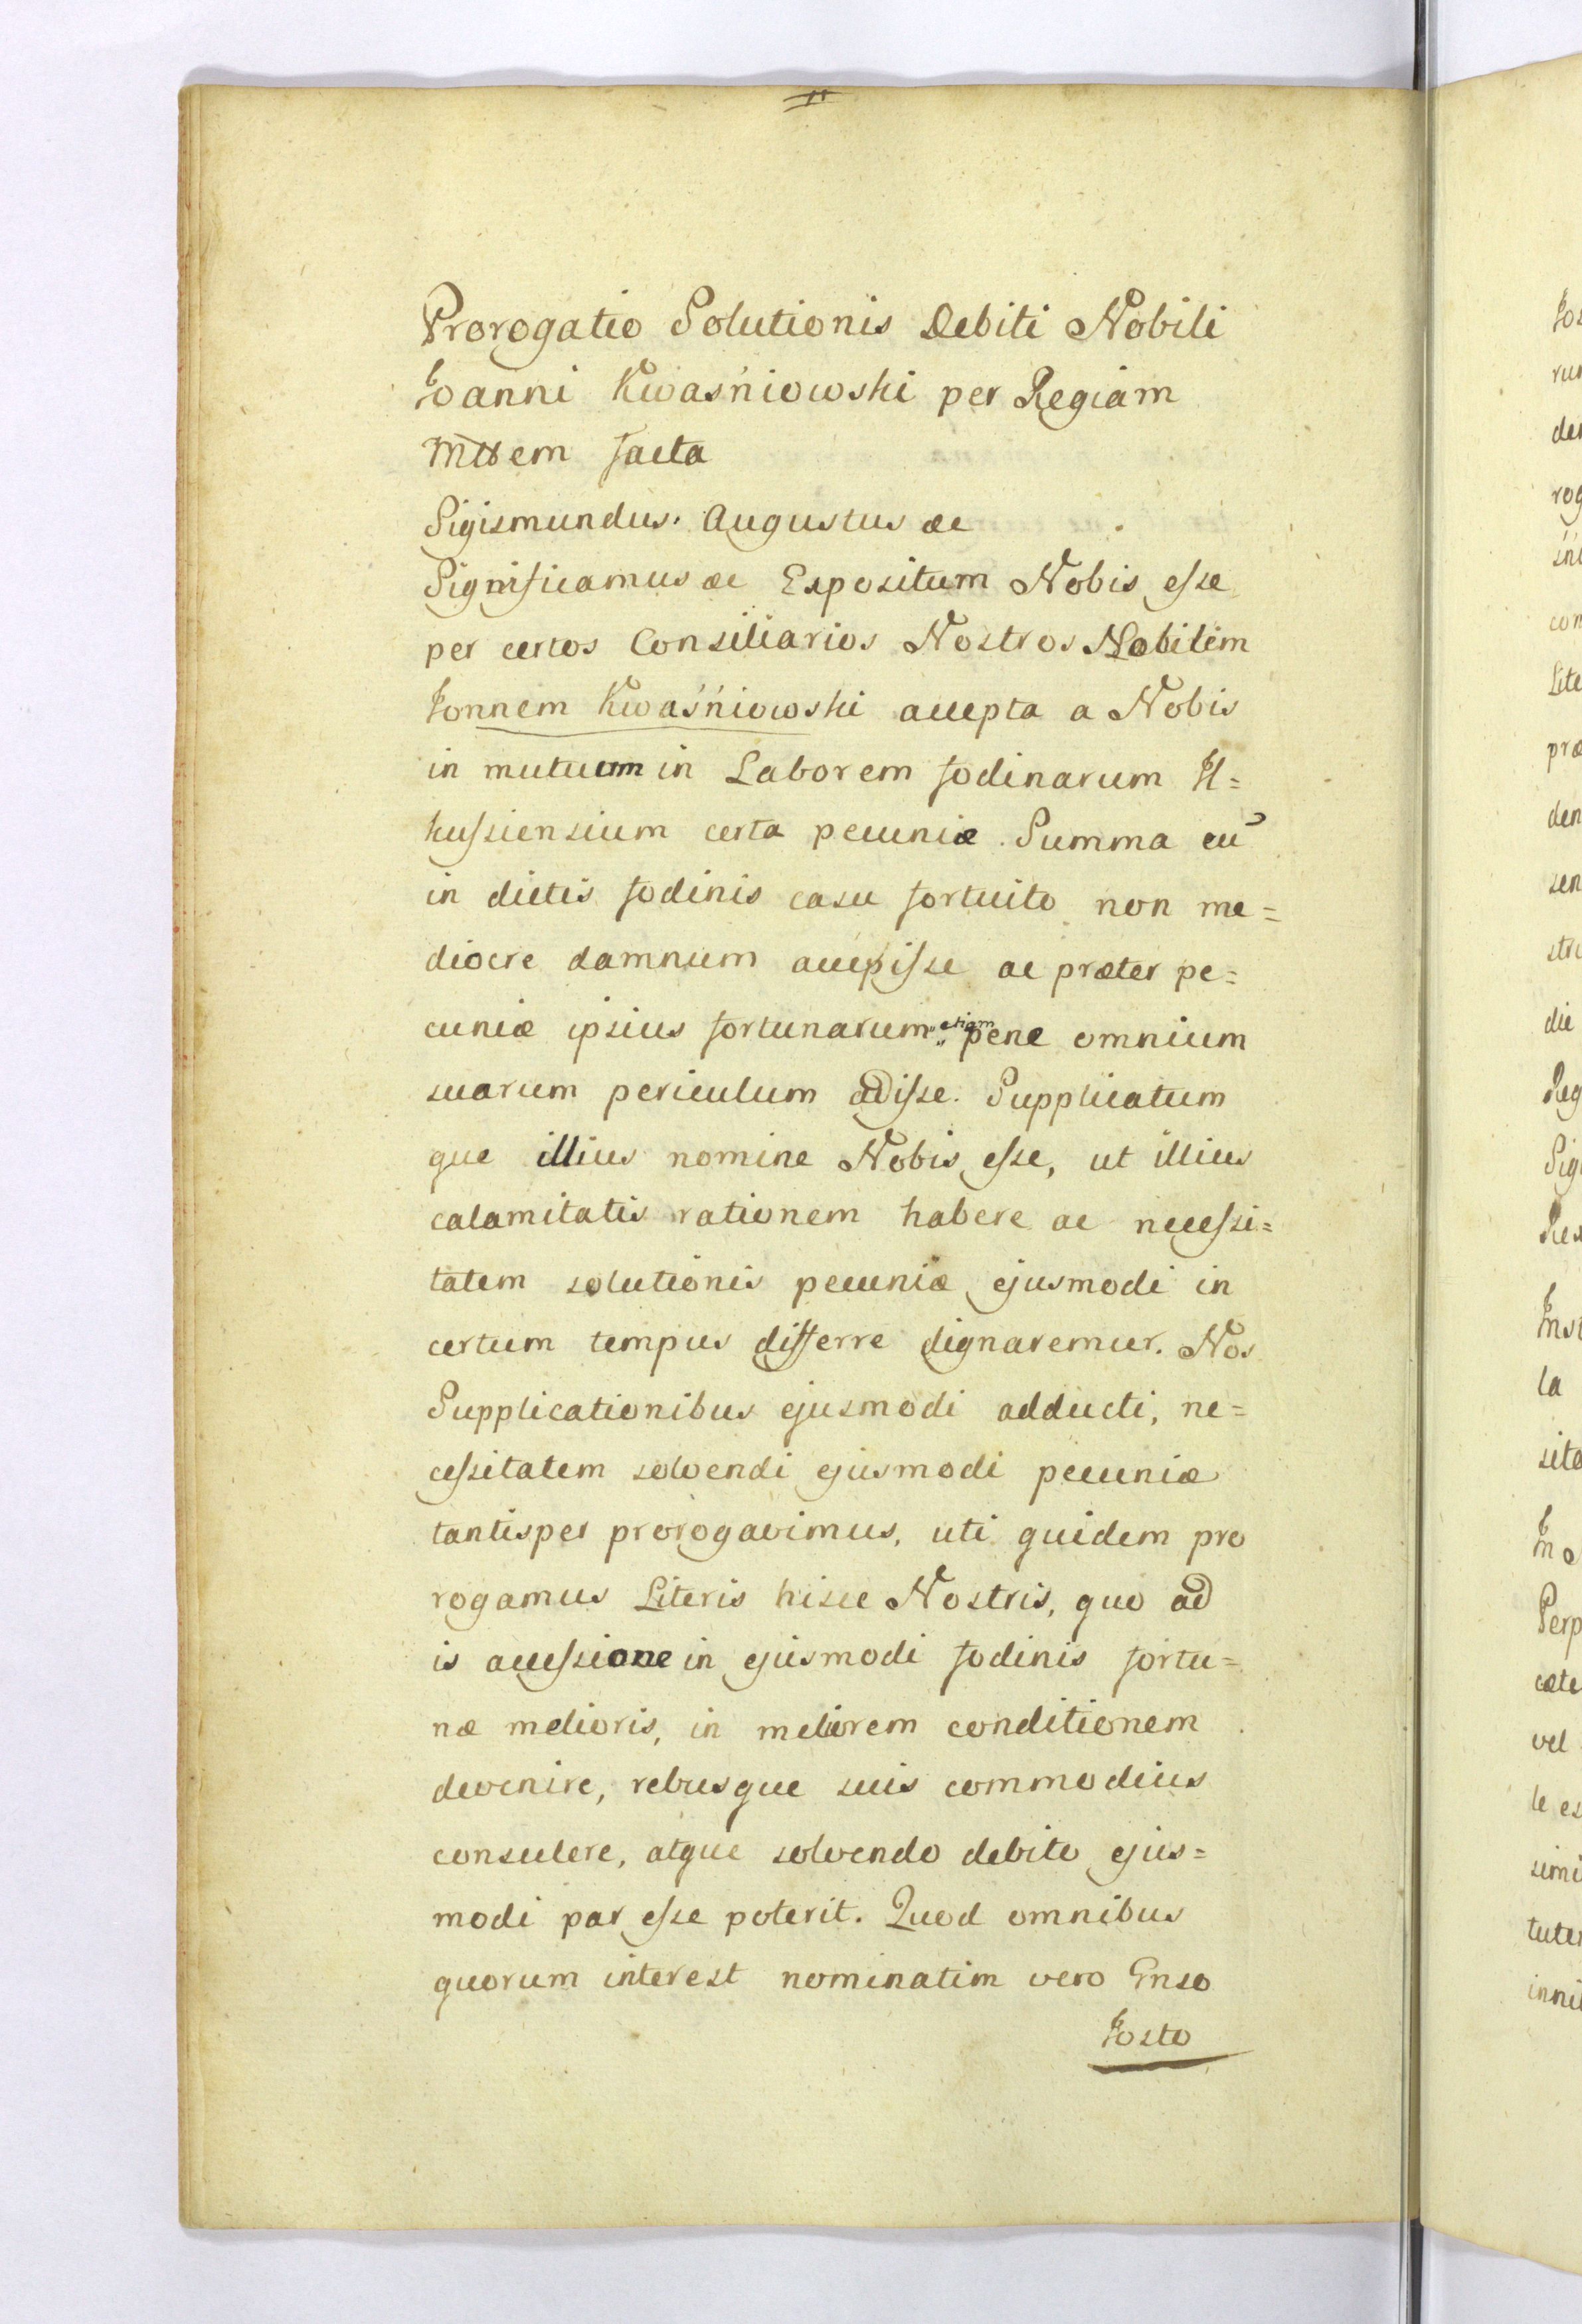 Prorogatio Solutionis Debiti Nobili
Joanni Kwaśniowski per Regiam
Mttem facta
Sigismundus Augustus ac
Significamus ac Expositum Nobis esse
per certos Consiliarios Nostros Nobilem
Jonnem Kwaśniowski accepta a Nobis
in mutuum in Laborem fodinarum Il=
kussiensium certa pecuniæ Summa eū
in dictis fodinis casu fortuito non me=
diocre damnum accepisse ac præter pe=
cuniæ ipsius fortunarum etiam pene omnium
suarum periculum adisse. Supplicatum
que illius nomine Nobis esse, ut illius
calamitatis rationem habere ac necessi=
tatem solutionis pecuniæ ejusmodi in
certum tempus differre dignaremur. Nos
Supplicationibus ejusmodi adducti, ne=
cessitatem solvendi ejusmodi pecuniæ
tantisper prorogavimus, uti quidem pro
rogamus Literis hisce Nostris, quo ad
is accessione in ejusmodi fodinis fortu=
næ melioris, in meliorem conditionem
devenire, rebusque suis commodius
consulere, atque solvendo debito ejus=
modi par esse poterit. Quod omnibus
quorum interest nominatim vero Gnso
Josto